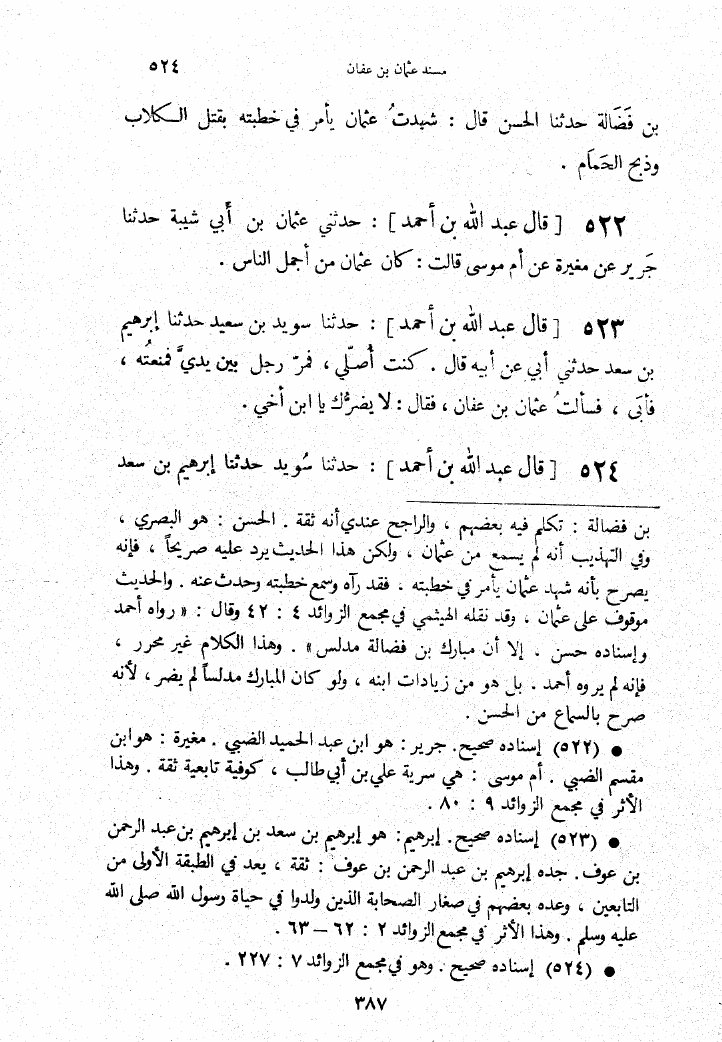 مسند عثمان بن عفان ٥٢٤
بن فَضَالة حدثنا الحسن قال : شهدتُ عثمان يأمر في خطبته بقتل الكلاب
وذبح الحَمَام .
٥٢٢ [ قال عبد الله بن أحمد ] : حدثني عثمان بن أبي شيبة حدثنا
جَرير عن مغيرة عن أم موسى قالت : كان عثمان من أجمل الناس .
٥٢٣ [ قال عبد الله بن أحمد ] : حدثنا سويد بن سعيد حدثنا إبرهيم
بن سعد حدثني أبي عن أبيه قال . كنت أُصلّي ، فمرّ رجل بين يديَّ فمنعتُه ،
فأبَى ، فسألتُ عثمان بن عفان ، فقال : لا يضرُّك يا ابن أخي .
٥٢٤ [ قال عبد الله بن أحمد ] : حدثنا سُويد حدثنا إبرهيم بن سعد
بن فضالة : تكلم فيه بعضهم ، والراجح عندي أنه ثقة . الحسن : هو البصري ،
وفي التهذيب أنه لم يسمع من عثمان ، ولكن هذا الحديث يرد عليه صريحاً ، فإنه
يصرح بأنه شهد عثمان يأمر في خطبته ، فقد رآه وسمع خطبته وحدث عنه . والحديث
موقوف على عثمان ، وقد نقله الهيثمي في مجمع الزوائد ٤ : ٤٢ وقال : « رواه أحمد
وإسناده حسن . إلا أن مبارك بن فضالة مدلس » . وهذا الكلام غير محرر ،
فإنه لم يروه أحمد . بل هو من زيادات ابنه ، ولو كان المبارك مدلساً لم يضر ، لأنه
صرح بالسماع من الحسن .
● (٥٢٢) إسناده صحيح. جرير : هو ابن عبد الحميد الضبي . مغيرة : هو ابن
مقسم الضبي . أم موسى : هي سرية علي بن أبي طالب ، كوفية تابعية ثقة . وهذا
الأثر في مجمع الزوائد ٩ : ٨٠ .
● (٥٢٣) إسناده صحيح. إبرهيم : هو إبرهيم بن سعد بن إبرهيم بن عبد الرحمن
بن عوف . جده إبرهيم بن عبد الرحمن بن عوف : ثقة ، يعد في الطبقة الأولى من
التابعين ، وعده بعضهم في صغار الصحابة الذين ولدوا في حياة رسول الله صلى الله
عليه وسلم . وهذا الأثر في مجمع الزوائد ٢ : ٦٢ – ٦٣ .
● (٥٢٤) إسناده صحيح . وهو في مجمع الزوائد ٧ : ٢٢٧ .
٣٨٧